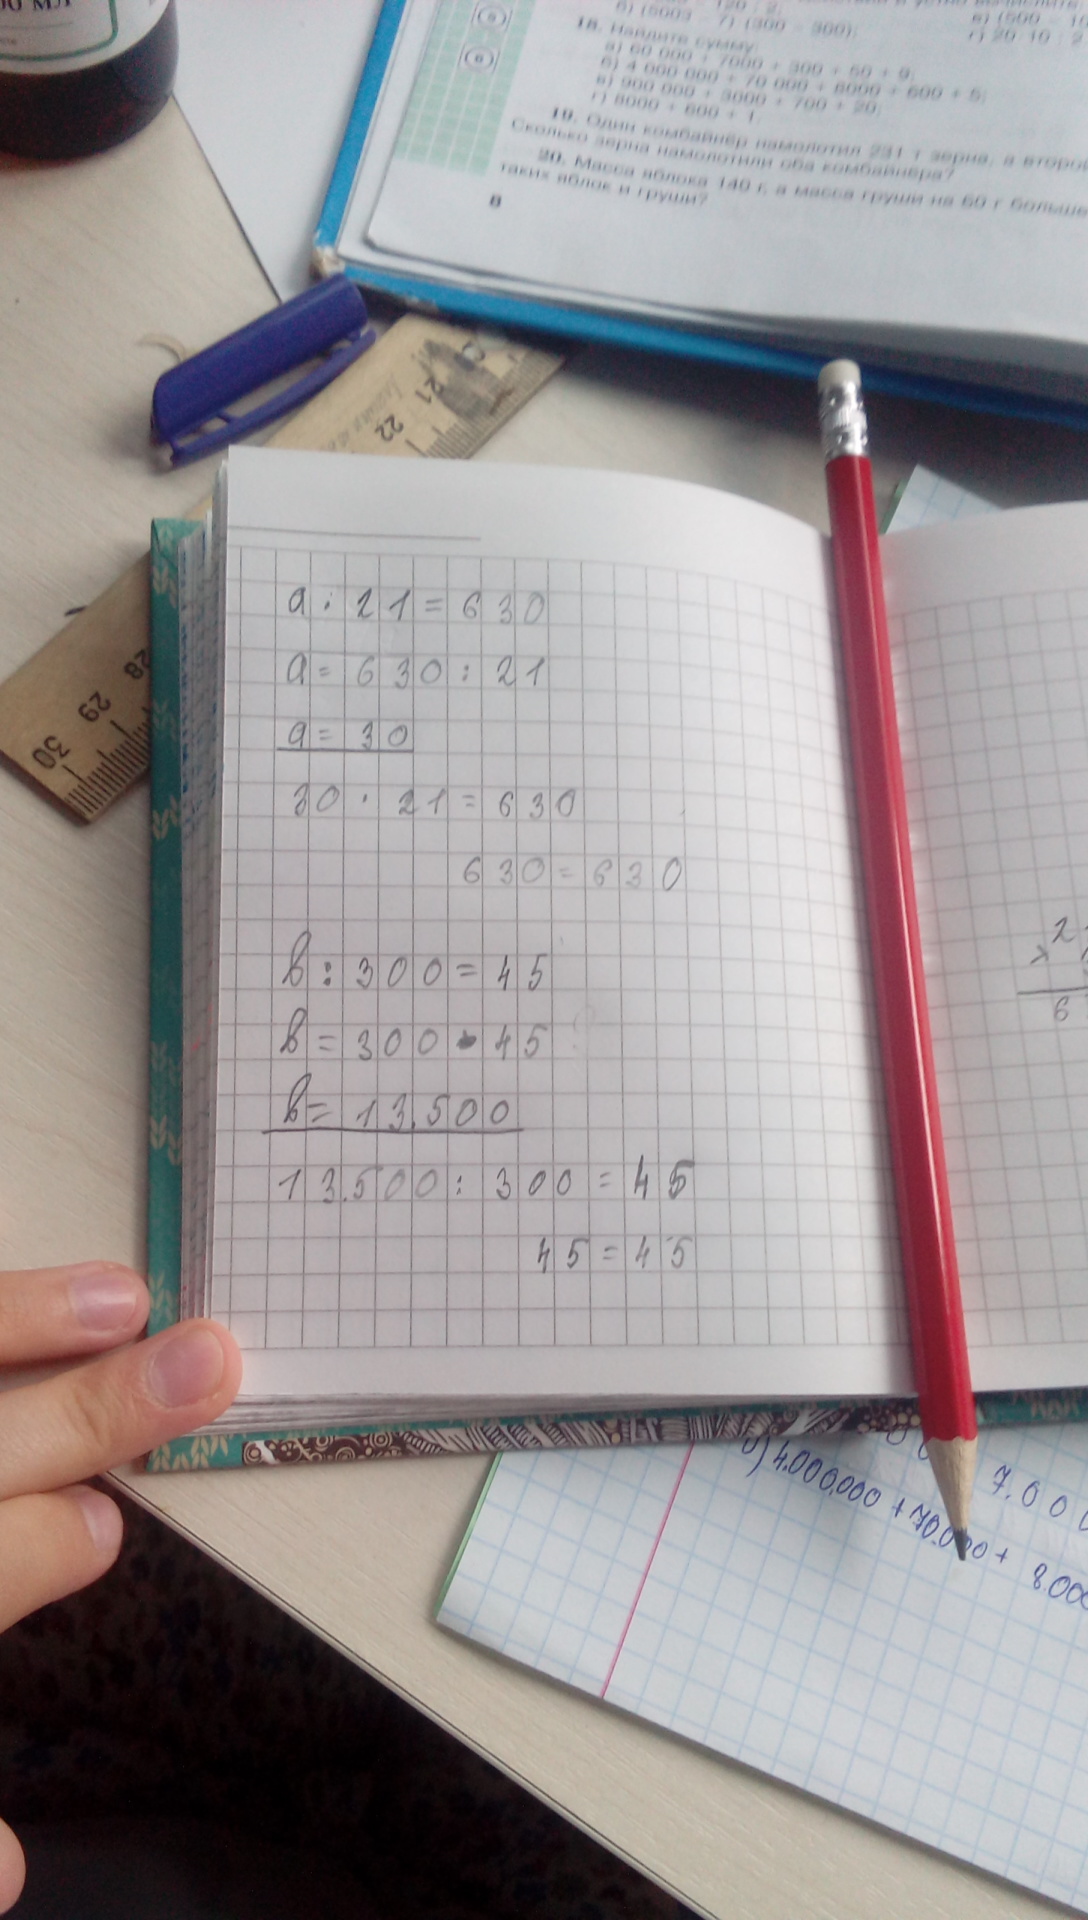 б) (5003 – 7) (300 – 300);
18. Найдите сумму:
а) 60 000 + 7000 + 300 + 50 + 9;
б) 4 000 000 + 70 000 + 8000 + 600 + 5;
в) 900 000 + 3000 + 700 + 20;
г) 8000 + 600 + 1.
19. Один комбайнёр намолотил 231 т зерна, а второй
Сколько зерна намолотили оба комбайнёра?
20. Масса яблока 140 г, а масса груши на 60 г больше
таких яблок и груши?
8
21
22
28
29
30
a : 21 = 630
a = 630 : 21
a = 30
30 · 21 = 630
630 = 630
в : 300 = 45
в = 300 · 45
в = 13.500
13.500 : 300 = 45
45 = 45
2
×
6
4.000.000 + 70.000 + 8.000